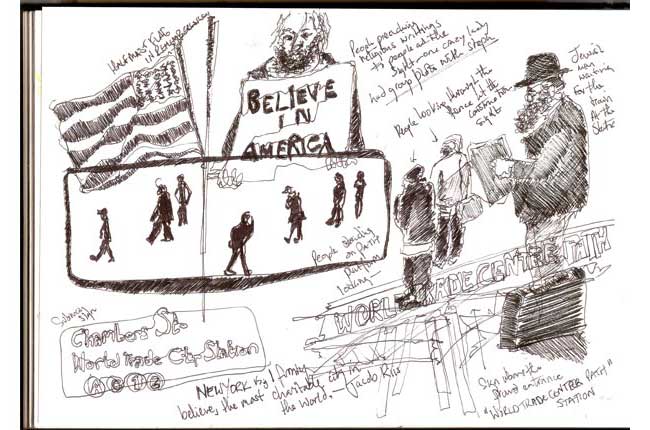 HALF MAST FLAG
IN REMEMBERENCE
BELIEVE
IN
AMERICA
People preaching
religious writings
to people at the
sight - one crazy lady
had group photo with
People looking through the
fence at the
construction
sight
Jewish
man
waiting
for the
train
At the
State
People standing
on PATH
platform
looking
WORLD TRADE CENTRE PATH
Subway
sign
Chambers St.
World Trade Ctr Station
A C 1 2
NEW YORK is, I firmly
believe, the most charitable city in
the world. Jacob Riis
Sign above the
street entrance
"WORLD TRADE CENTER PATH"
STATION